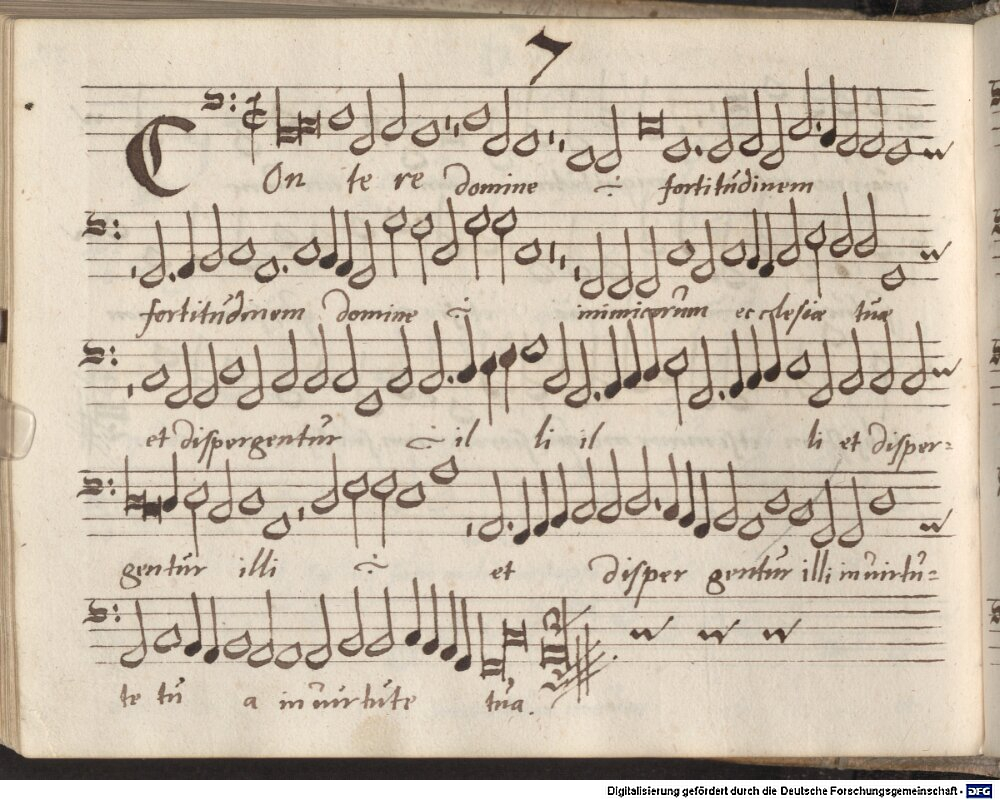 7
COn te re domine ·/· fortitudinem
fortitudinem domine ·/· inimicorum ecclesiæ tuæ
et dispergentur ·/· il li il li et disper=
gentur illi ·/· et disper gentur illi in virtu=
te tu a in virtute tua.
Digitalisierung gefördert durch die Deutsche Forschungsgemeinschaft - DFG